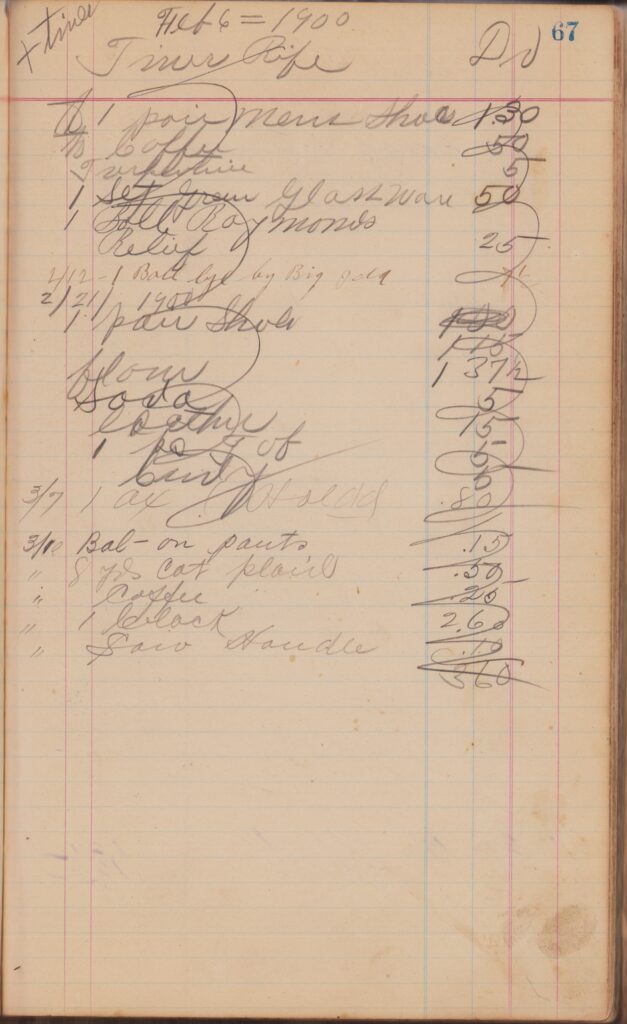 + tiner
Feb 6 = 1900
67
Tiner Rife Dr
1 pair Mens Shoe 1.30
Coffee 50
Turpentine 5
1 Set Green Glassware 50
1 Bottle Raymonds
Relief 25
2/12 - 1 Ball lye by Big
2/21/1900
1 pair Shoes
1 15
flour 1 37½
Soda 5
Leather 15
1 of
3/7 1 ax .80
3/10 Bal - on pants .15
" 8 yds Cot plaid .50
" Coffee .25
" 1 Clock 2.60
" Saw Handle .10
360